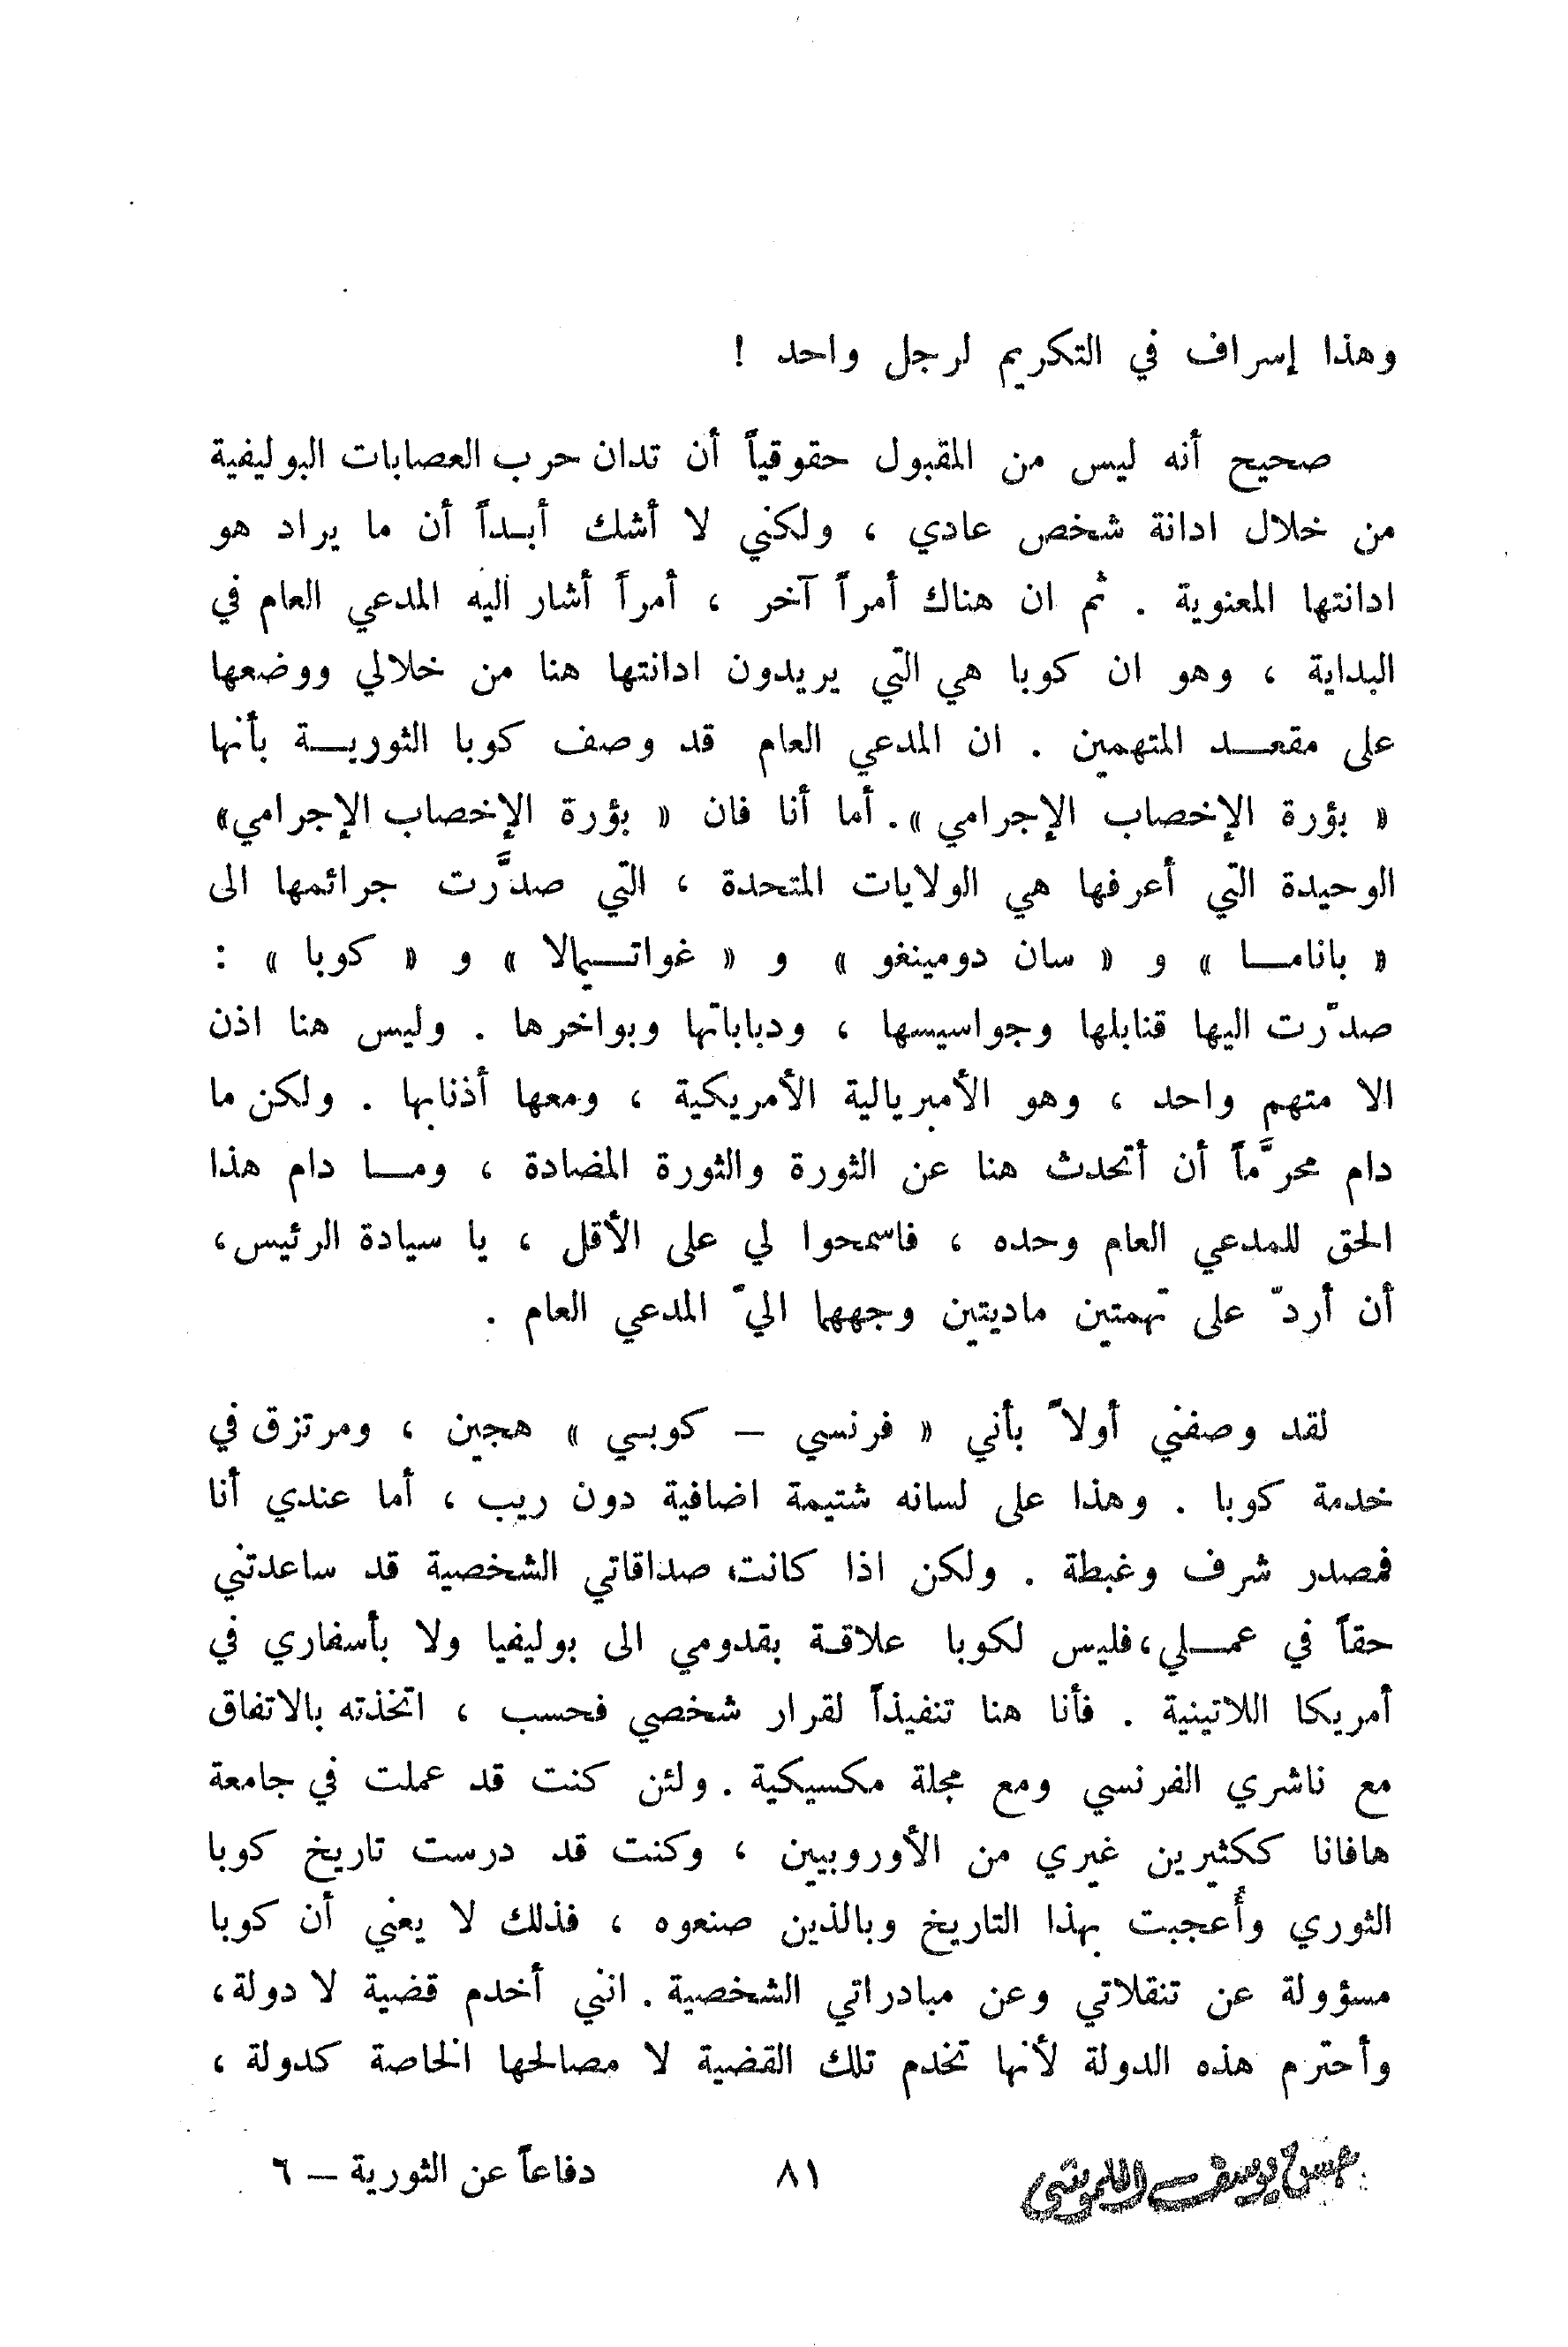 وهذا إسراف في التكريم لرجل واحد !
صحيح أنه ليس من المقبول حقوقياً أن تدان حرب العصابات البوليفية
من خلال ادانة شخص عادي ، ولكني لا أشك أبـداً أن ما يراد هو
ادانتها المعنوية . ثم ان هناك أمراً آخر ، أمراً أشار اليه المدعي العام في
البداية ، وهو ان كوبا هي التي يريدون ادانتها هنا من خلالي ووضعها
على مقعـــد المتهمين . ان المدعي العام قد وصف كوبا الثوريـــة بأنها
« بؤرة الإخصاب الإجرامي ». أما أنا فان « بؤرة الإخصاب الإجرامي»
الوحيدة التي أعرفها هي الولايات المتحدة ، التي صدَّرت جرائمها الى
« بانامـــا » و « سان دومينغو » و « غواتـــيمالا » و « كوبا » :
صدّرت اليها قنابلها وجواسيسها ، ودباباتها وبواخرها . وليس هنا اذن
الا متهم واحد ، وهو الأمبريالية الأمريكية ، ومعها أذنابها . ولكن ما
دام محرَّماً أن أتحدث هنا عن الثورة والثورة المضادة ، ومـــا دام هذا
الحق للمدعي العام وحده ، فاسمحوا لي على الأقل ، يا سيادة الرئيس،
أن أردّ على تهمتين ماديتين وجههما اليّ المدعي العام .
لقد وصفني أولاً بأني « فرنسي – كوبـي » هجين ، ومرتزق في
خدمة كوبا . وهذا على لسانه شتيمة اضافية دون ريب ، أما عندي أنا
فمصدر شرف وغبطة . ولكن اذا كانت صداقاتي الشخصية قد ساعدتني
حقاً في عمـــلي،فليس لكوبا علاقـة بقدومي الى بوليفيا ولا بأسفاري في
أمريكا اللاتينية . فأنا هنا تنفيذاً لقرار شخصي فحسب ، اتخذته بالاتفاق
مع ناشري الفرنسي ومع مجلة مكسيكية . ولئن كنت قد عملت في جامعة
هافانا ككثيرين غيري من الأوروبيين ، وكنت قد درست تاريخ كوبا
الثوري وأُعجبت بهذا التاريخ وبالذين صنعوه ، فذلك لا يعني أن كوبا
مسؤولة عن تنقلاتي وعن مبادراتي الشخصية . انني أخدم قضية لا دولة،
وأحترم هذه الدولة لأنها تخدم تلك القضية لا مصالحها الخاصة كدولة ،
دفاعاً عن الثورية – ٦
٨١